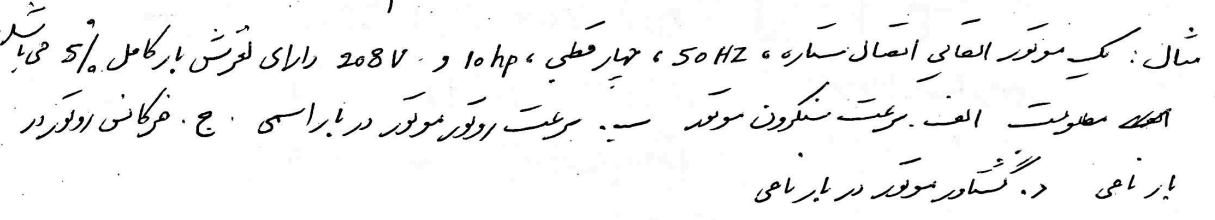 مثال: یک موتور القایی اتصال ستاره، 50HZ، چهار قطبی، 10hp و 208V دارای لغزش بار کامل 5% می باشد
مطلوبست الف. سرعت سنکرون موتور ب. سرعت روتور موتور در بار اسمی. ج. فرکانس روتور در
بار نامی د. گشتاور موتور در بار نامی